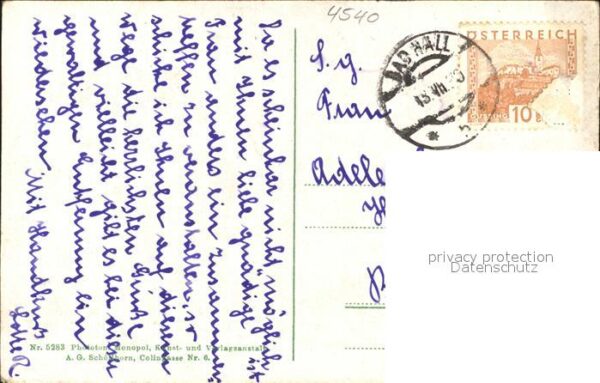 4540
Da es scheinbar nicht möglich ist
mit Ihnen liebe gnädige
Frau anders ein Zusammen-
treffen zu veranstalten, so
schicke ich Ihnen auf diesem
Wege die herzlichsten Grüße
und vielleicht gibt es bei dieser
gewaltigen Entfernung ein
Wiedersehen.
Mit Handkuß
Nr. 5283 Phototon Monopol, Kunst- und Verlagsanstalt
A. G. Schönhorn, Collngasse Nr. 6.
S. g.
Frau
Adele
BAD HALL
VII.
ÖSTERREICH
GÜSSING 10
privacy protection
Datenschutz